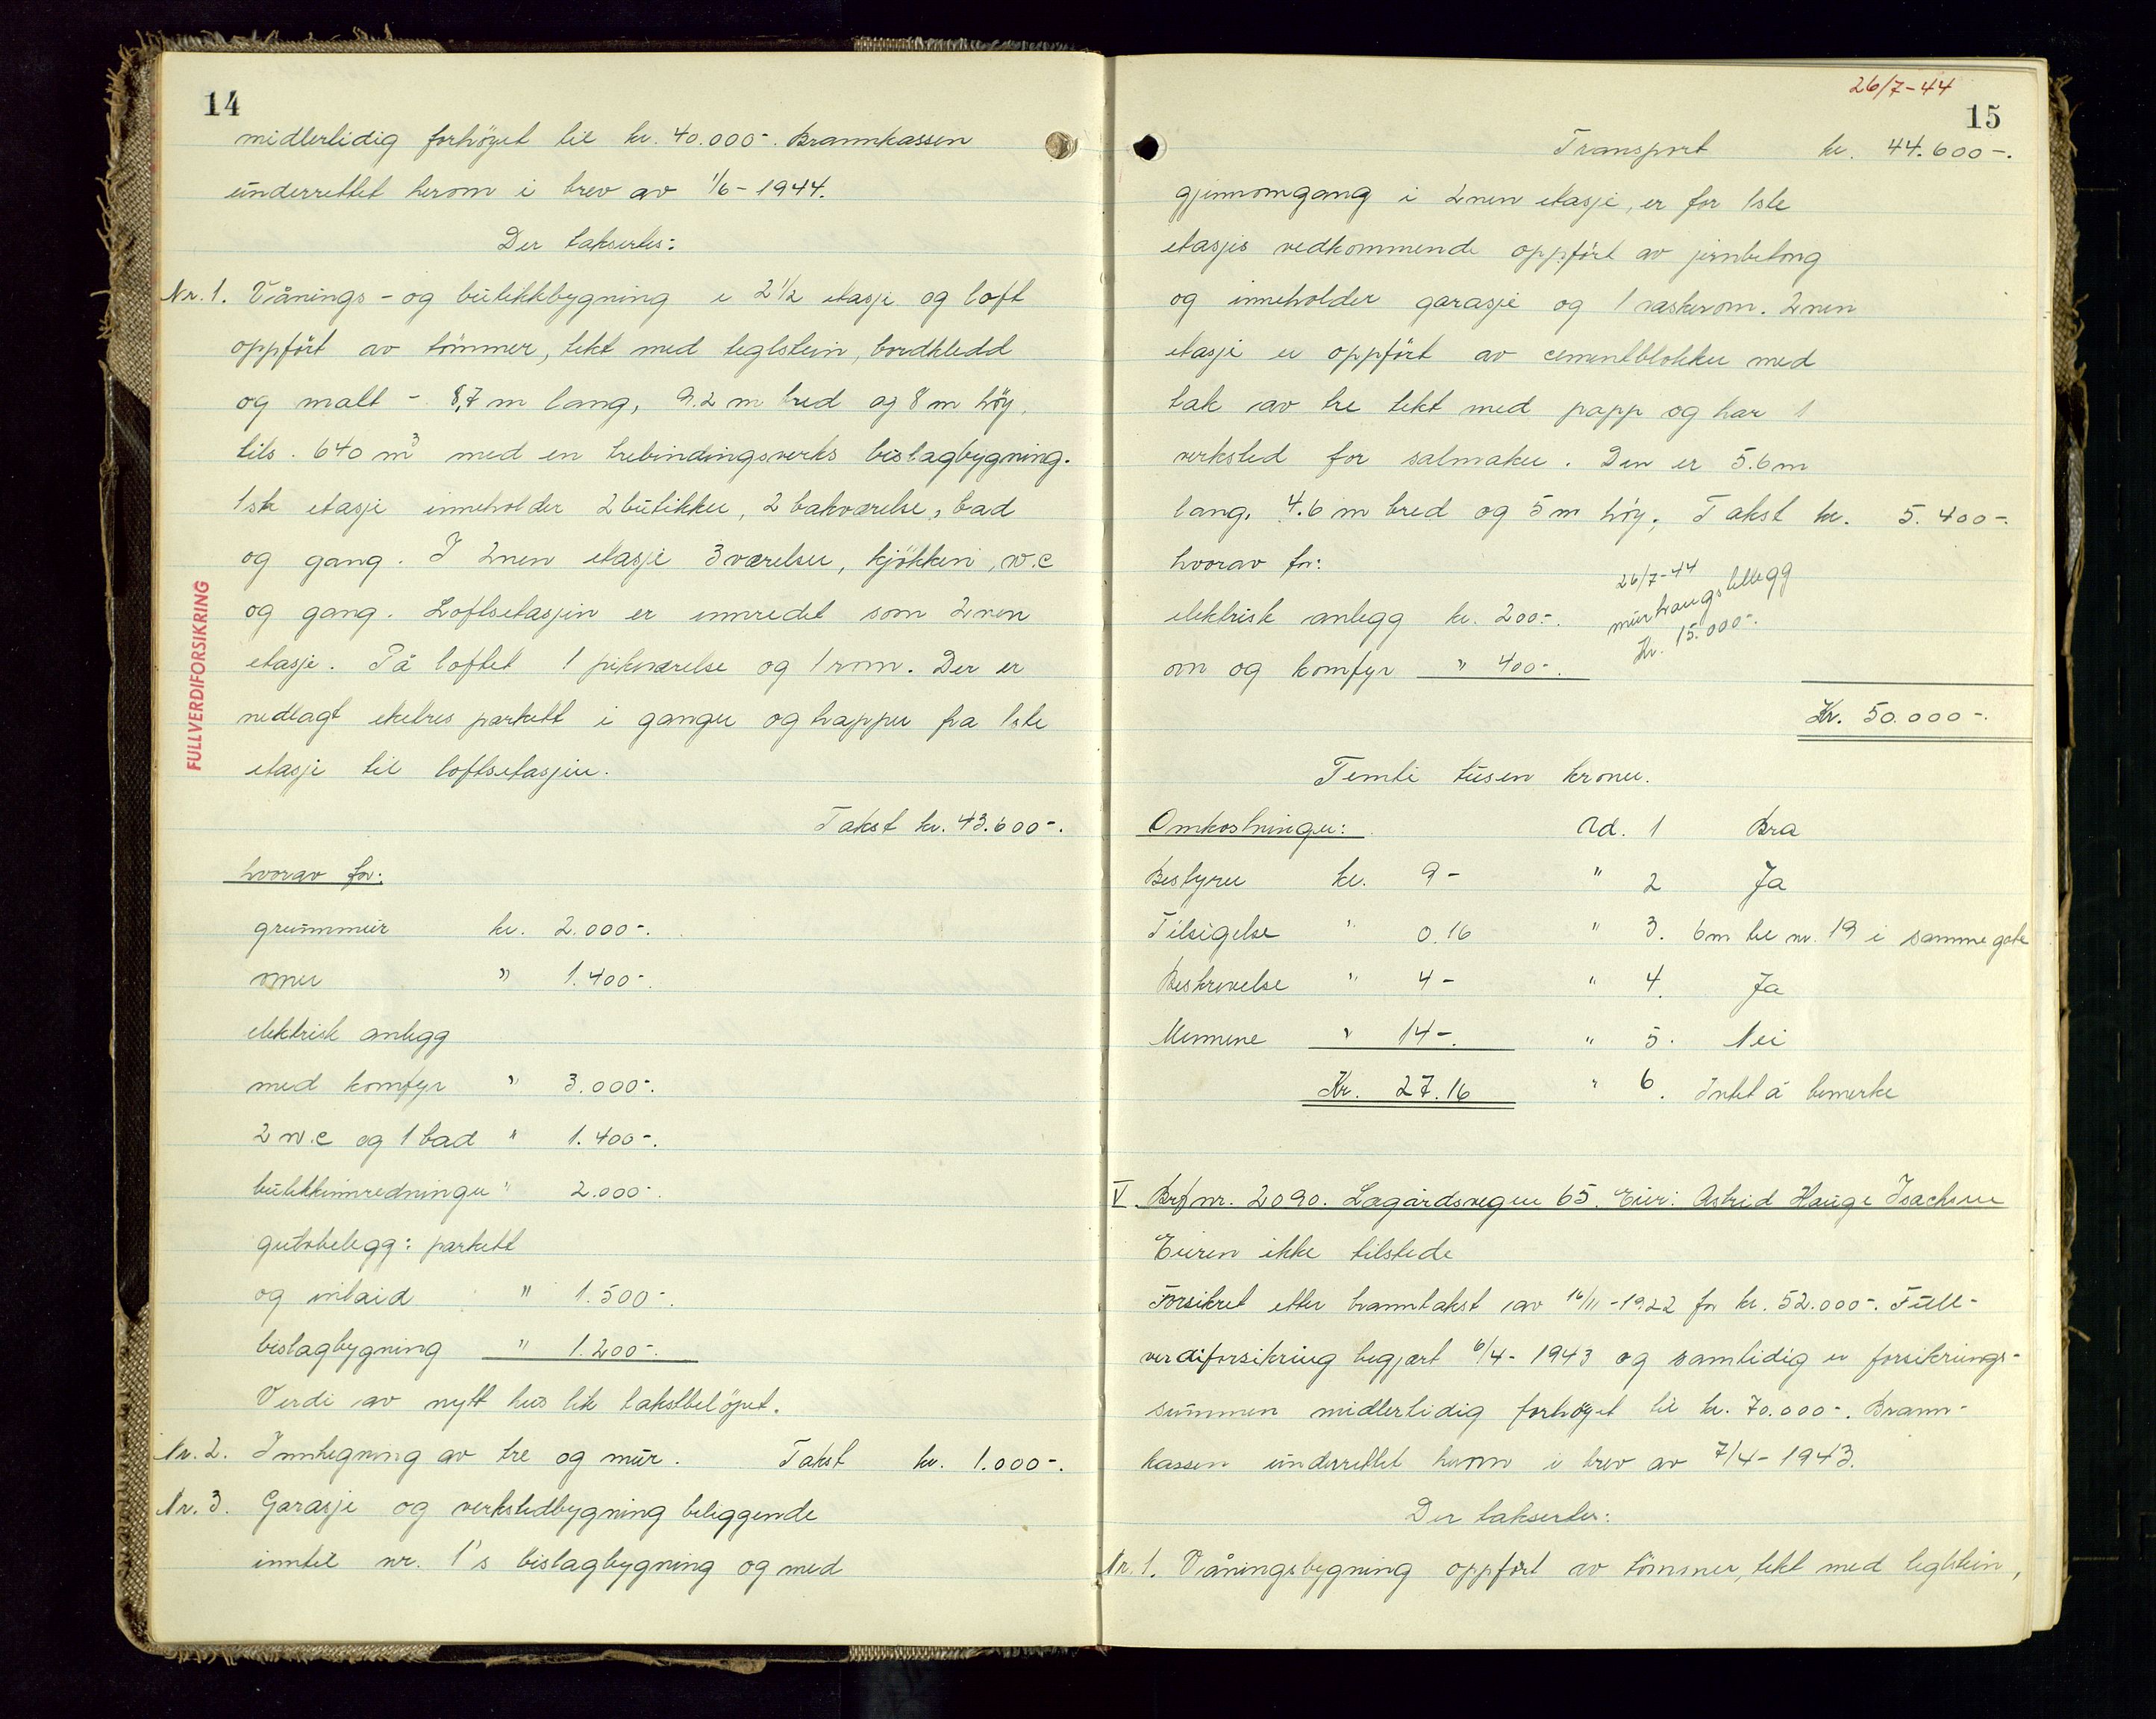 14
midlertidig forhöyet til kr. 40.000-. Brannkassen
underrettet herom i brev av 1/6-1944.
Der takseres:
Nr. 1. Vånings- og butikkbygning i 2 1/2 etasje og loft
oppfört av tömmer, tekt med teglstein, bordkledd
og malt - 8,7 m lang, 9.2 m bred og 8 m höy,
tils. 640 m³ med en trebindingsverks bislagbygning.
1ste etasje inneholder 2 butikker, 2 bakværelse, bad
og gang. I 2nen etasje 3 værelser, kjökken, w.c
og gang. Loftsetasjen er innredet som 2nen
etasje. På loftet 1 pikeværelse og 1 rom. Der er
nedlagt ekebres parkett i ganger og trapper fra 1ste
etasje til loftsetasjen.
FULLVERDIFORSIKRING
Takst kr. 43.600-.
hvorav for:
grunnmur kr. 2.000-.
ovner " 1.400-.
elektrisk anlegg
med komfyr " 3.000-.
2 w.c og 1 bad " 1.400-.
butikkinnredninger " 2.000-.
gulvbelegg: parkett
og inlaid " 1.500-.
bislagbygning " 1.200-.
Verdi av nytt hus lik takstbelöpet.
Nr. 2. Innhegning av tre og mur. Takst kr. 1.000-.
Nr. 3. Garasje og verkstedbygning beliggende
inntil nr. 1's bislagbygning og med
26/7-44
15
Transport kr. 44.600-.
gjennomgang i 2nen etasje, er for 1ste
etasjes vedkommende oppfört av jernbetong
og inneholder garasje og 1 vaskerom. 2nen
etasje er oppfört av cementblokker med
tak av tre tekt med papp og har 1
verksted for salmaker. Den er 5.6 m
lang, 4.6 m bred og 5 m höy. Takst kr. 5.400-.
hvorav for:
elektrisk anlegg kr. 200-.
ovn og komfyr " 400-.
26/7-44
murtvangstillegg
Kr. 15.000-.
Kr. 50.000-.
Femti tusen kroner.
Omkostninger: Ad. 1 Bra
Bestyrer kr. 9- " 2 Ja
Tilsigelse " 0.16 " 3. 6m til nr. 19 i samme gate
Beskrivelse " 4- " 4. Ja
Mennene " 14-. " 5. Nei
Kr. 27.16 " 6. Intet å bemerke
V. Brf nr. 2090. Lagårdsvegen 65. Eier: Astrid Hauge Isachsen
Eieren ikke tilstede
Forsikret etter branntakst av 16/11-1922 for kr. 52.000-. Full-
verdiforsikring begjært 6/4-1943 og samtidig er forsikrings-
summen midlertidig forhöyet til kr. 70.000-. Brann-
kassen underrettet herom i brev av 7/4-1943.
Der takseres:
Nr. 1. Våningsbygning oppfört av tömmer, tekt med teglstein,